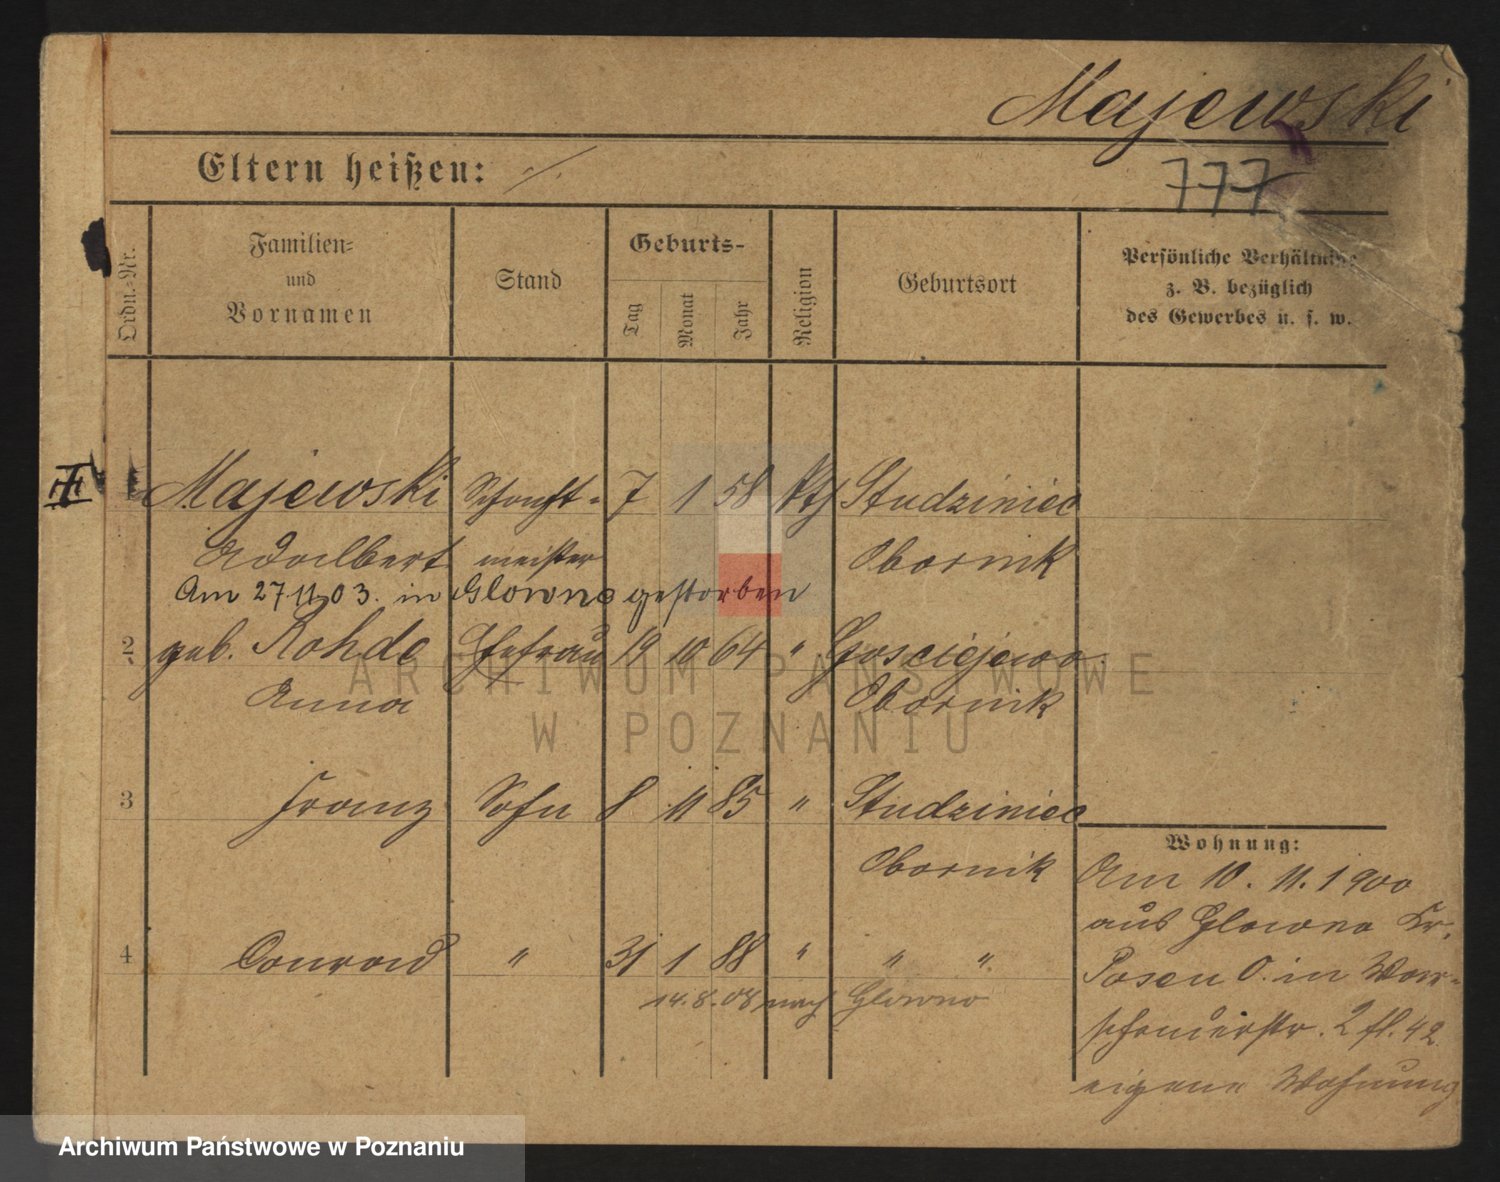 Majewski
777
Eltern heißen: ./.
Ordn.-Nr.
Familien-
und
Vornamen
Stand
Geburts-
Tag
Monat
Jahr
Religion
Geburtsort
Persönliche Verhältnisse
z. B. bezüglich
des Gewerbes u. s. w.
1 Majewski 7 1 58 kth Studziniec
Adalbert meister Obornik
Am 27 11 03. in Glowno gestorben
2 geb. Rohde Ehefrau 19 10 64 " Gosciejewo
Anna Obornik
3 Franz Sohn 8 11 85 " Studziniec
Obornik
4 Conrad " 31 1 88 " " "
14.8.08 nach Glowno
Wohnung:
Am 10. 11. 1900
aus Glowno Kr.
Posen O. in War-
schauerstr. 2 fl. 42
eigene Wohnung
ARCHIWUM PAŃSTWOWE
W POZNANIU
Archiwum Państwowe w Poznaniu